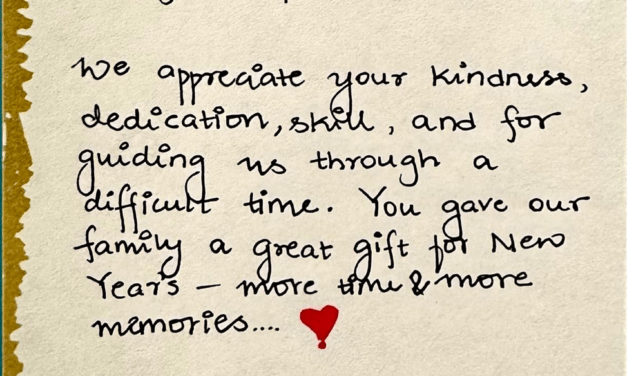 We appreciate your kindness,
dedication, skill, and for
guiding us through a
difficult time. You gave our
family a great gift for New
Year's – more time & more
memories....